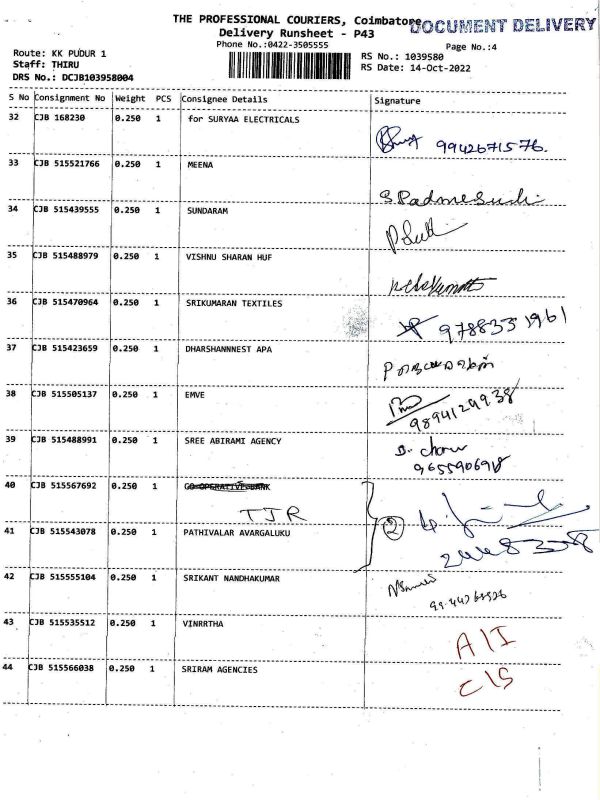 THE PROFESSIONAL COURIERS, Coimbatore
DOCUMENT DELIVERY
Delivery Runsheet - P43
Phone No.:0422-3505555
Page No.:4
Route: KK PUDUR 1
RS No.: 1039580
Staff: THIRU
RS Date: 14-Oct-2022
DRS No.: DCJB103958004
S No Consignment No Weight PCS Consignee Details Signature
32 CJB 168230 0.250 1 for SURYAA ELECTRICALS
9942671576.
33 CJB 515521766 0.250 1 MEENA
S.Padmesudi
34 CJB 515439555 0.250 1 SUNDARAM
35 CJB 515488979 0.250 1 VISHNU SHARAN HUF
36 CJB 515470964 0.250 1 SRIKUMARAN TEXTILES
9788331961
37 CJB 515423659 0.250 1 DHARSHANNNEST APA
38 CJB 515505137 0.250 1 EMVE
9894129938
39 CJB 515488991 0.250 1 SREE ABIRAMI AGENCY
9655906918
40 CJB 515567692 0.250 1 CO-OPERATIVE BANK
TJR
2
41 CJB 515543078 0.250 1 PATHIVALAR AVARGALUKU
42 CJB 515555104 0.250 1 SRIKANT NANDHAKUMAR
43 CJB 515535512 0.250 1 VINRRTHA
A/I
44 CJB 515566038 0.250 1 SRIRAM AGENCIES
C/S